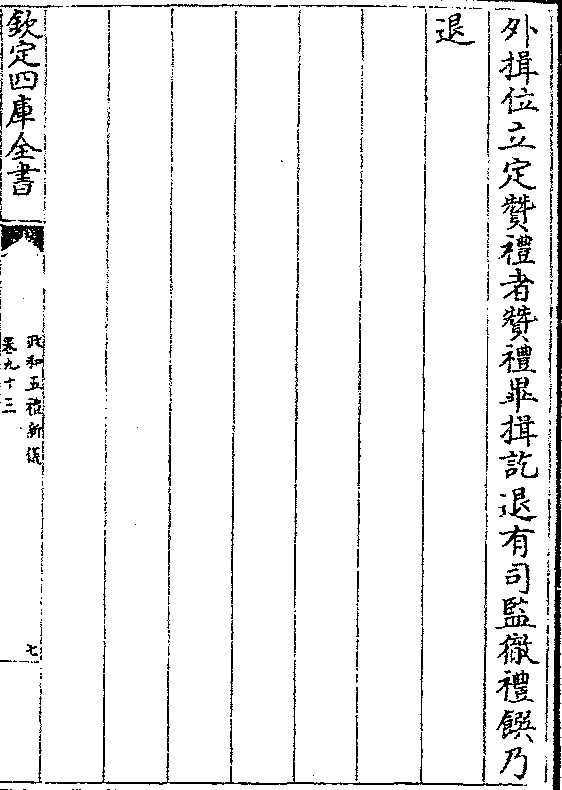 外揖位立定贊禮者贊禮畢揖訖退有司監徹禮饌乃
退
欽定四庫全書
政和五禮新儀
卷九十三
七